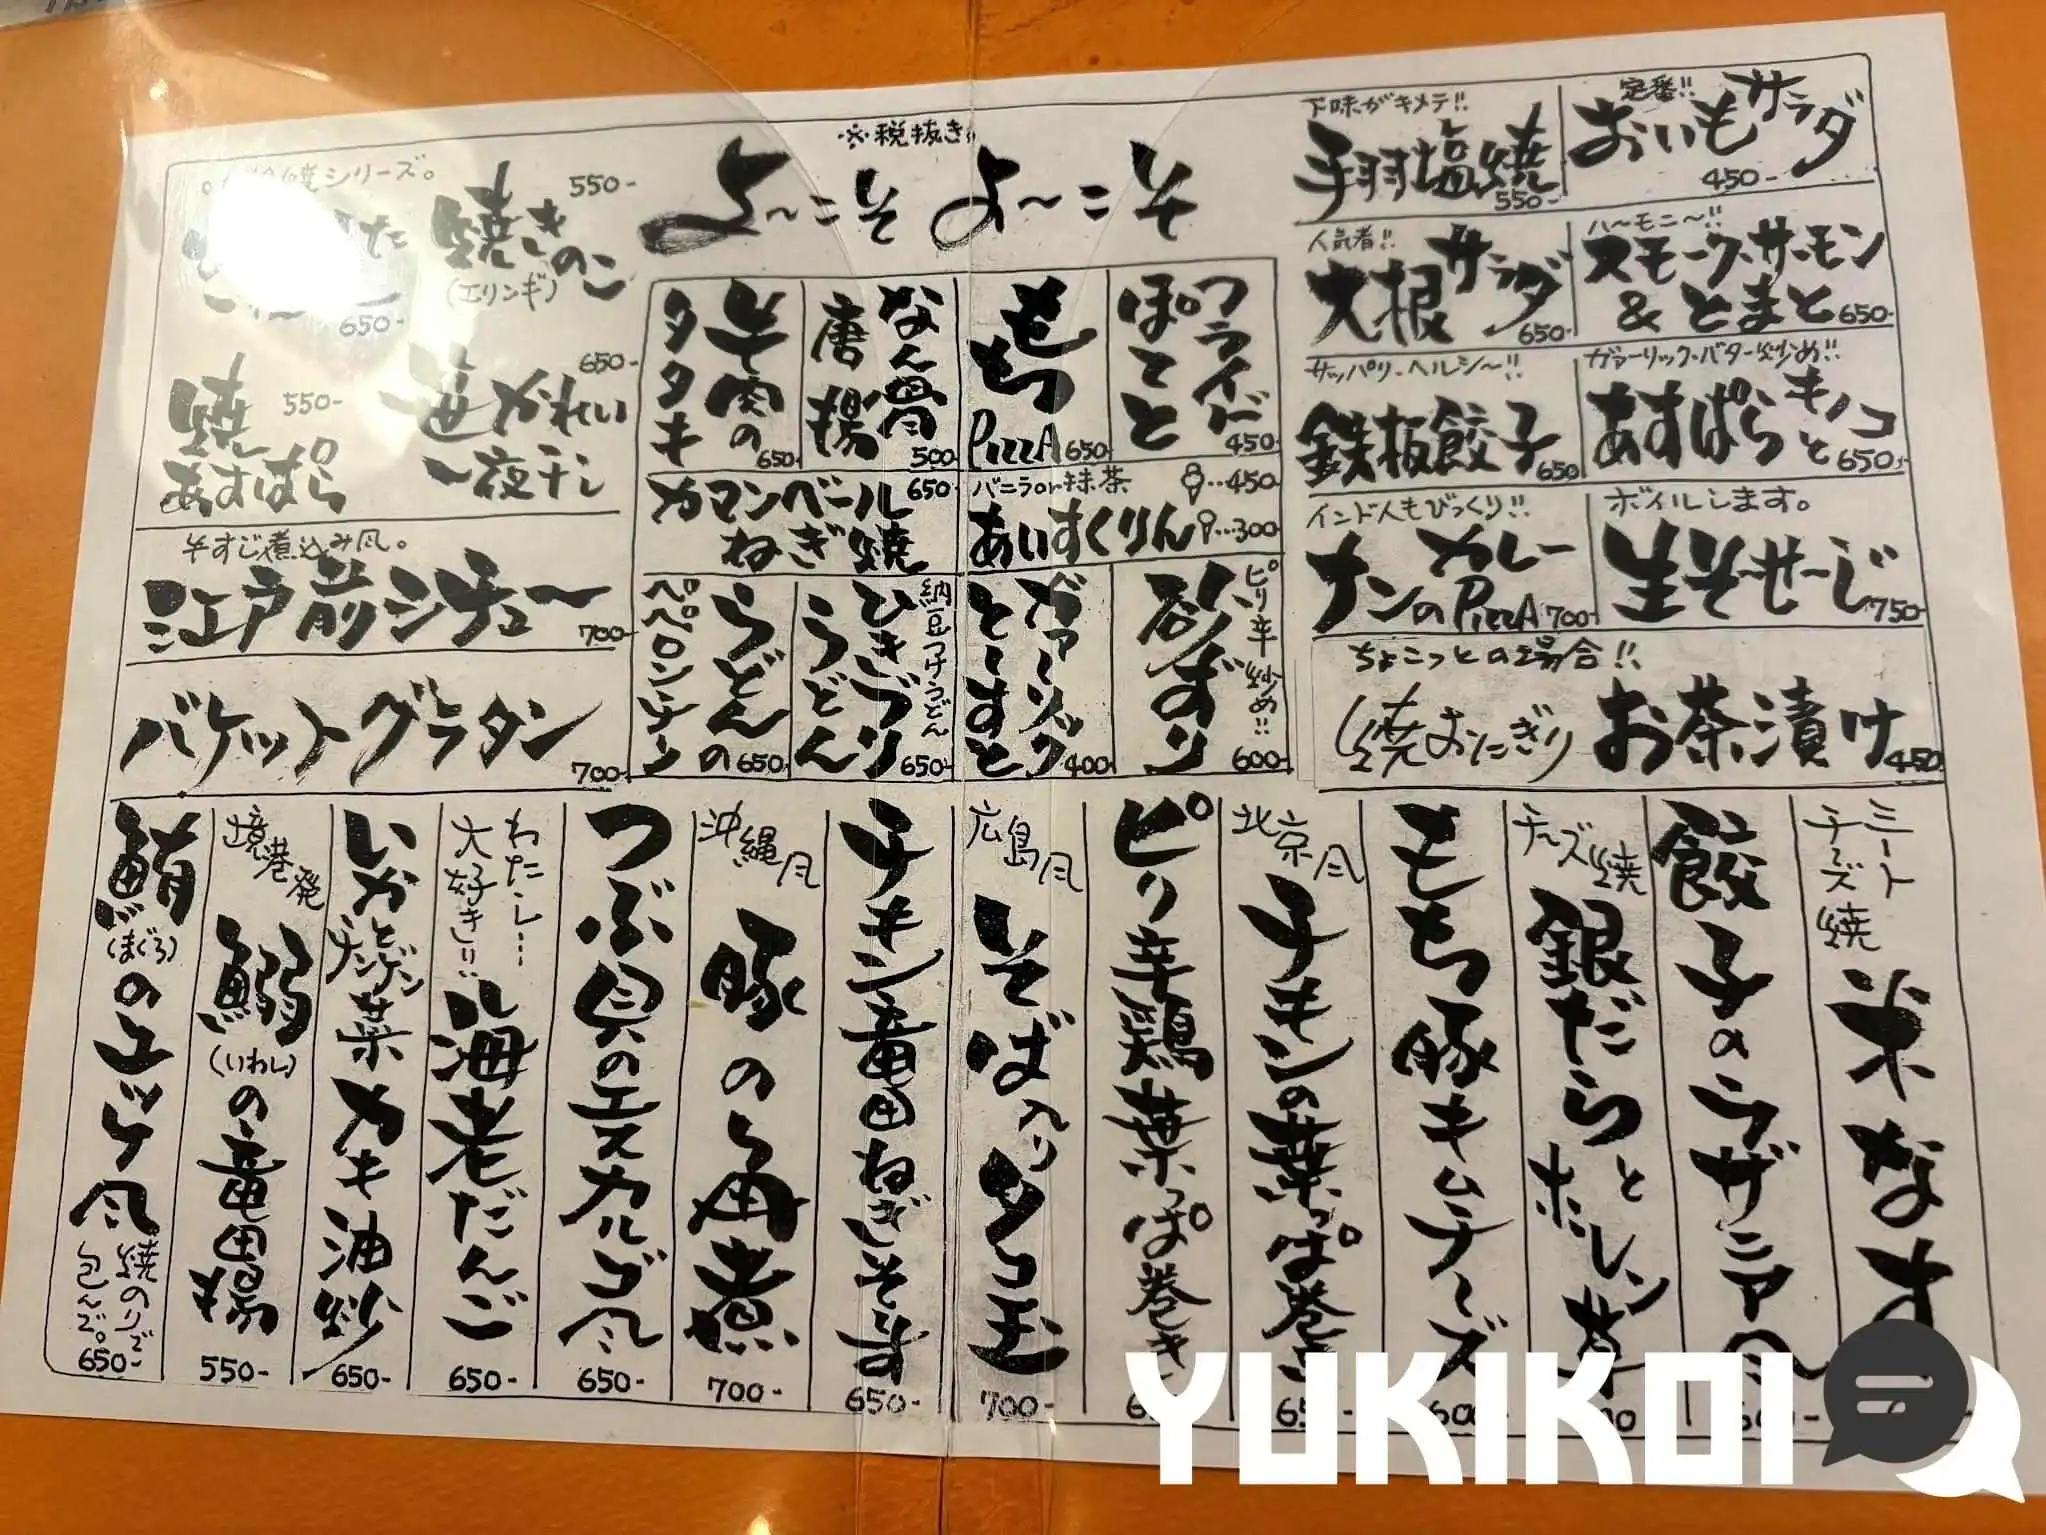 ※税抜き
よ〜こそ よ〜こそ
焼シリーズ。
650-
焼きのこ
(エリンギ)
550-
焼あすぱら
550-
笹かれい
一夜干し
650-
牛すじ煮込み風。
江戸前シチュー
700-
バケットグラタン
700-
牛肉の
タタキ
650-
なん骨
唐揚
500-
もち
PizzA
650-
フライド
ぽてと
450-
カマンベール
ねぎ焼
650-
バニラor抹茶
あいすくりん
…450-
…300-
うどんの
ペペロンチーノ
650-
納豆つけうどん
ひきづり
うどん
650-
ガァーリック
とーすと
400-
ピリ辛炒め!!
砂ずり
600-
下味がキメテ!!
手羽塩焼
550-
定番!!
おいもサラダ
450-
人気者!!
大根サラダ
650-
ハ〜モニ〜!!
スモークサーモン
&とまと
650-
サッパリ・ヘルシ〜!!
鉄板餃子
650
ガァーリック・バター炒め!!
あすぱらと
キノコ
650-
インド人もびっくり!!
ナンの
カレー
PizzA
700-
ボイルします。
生そーせーじ
750-
ちょこっとの場合!!
焼おにぎり
お茶漬け
450
ミート
チーズ焼
米なす
餃子のラザニア
チーズ焼
銀だらと
ホーレン草
もち豚キムチーズ
600-
北京風
チキンの葉っぱ巻き
ピリ辛鶏葉っぱ巻き
広島風
そば入りタコ玉
700-
チキン竜田ねぎそーす
650-
沖縄風
豚の角煮
700-
つぶ貝のエスカルゴ風
650-
わたし…
大好き!!
海老だんご
650-
いかとチンゲン菜カキ油炒
650-
境港発
鰯(いわし)の竜田揚
550-
鮪(まぐろ)のユッケ風
焼のりで
包んで。
650-
YUKIKOI